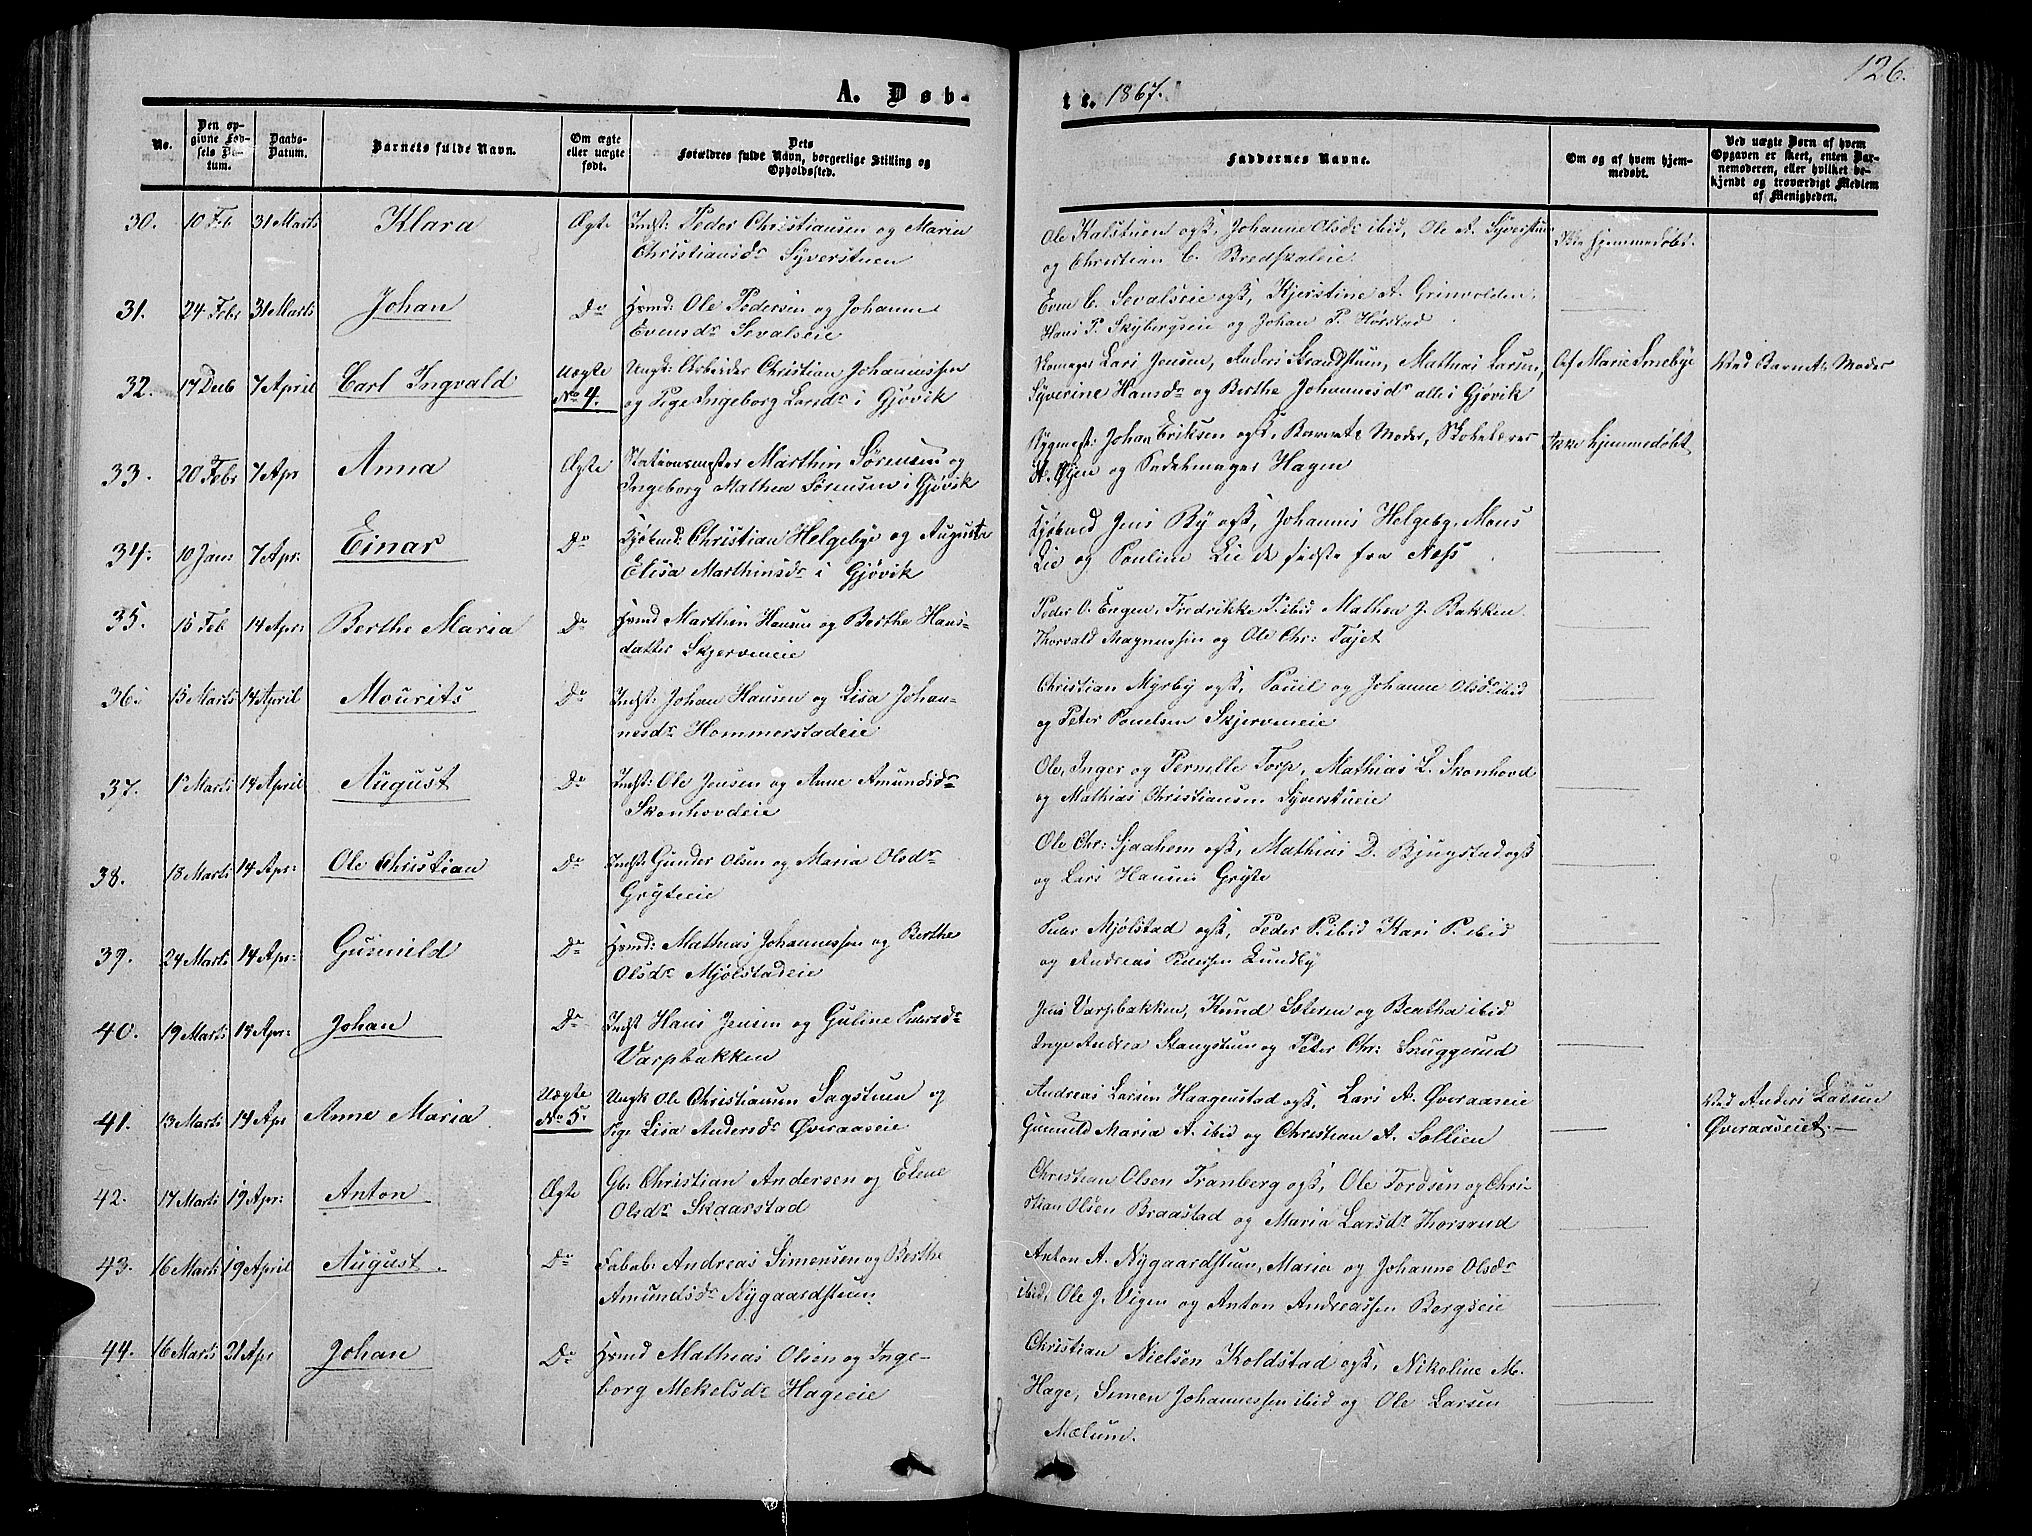 126.
A. Døb-
te. 1867.
No.
Den op-
givne Fød-
sels Da-
tum.
Daabs-
Datum.
Barnets fulde Navn.
Om ægte
eller uægte
født.
Dets
Forældres fulde Navn, borgerlige Stilling og
Opholdssted.
Faddernes Navne.
Om og af hvem hjem-
medøbt.
Ved uægte Børn af hvem
Opgaven er skeet, enten Bar-
nemoderen, eller hvilket be-
kjendt og troværdigt Medlem
af Menigheden.
30. 10 Feb 31 Marts Klara Ægte Indst: Peder Christiansen og Maria
Christiansdr Syverstuen
Ole Kalstuen ogß, Johanne Olsdr ibid, Ole A. Syverstuen
og Christian C. Bredskaleie.
Ikke hjemmedøbt.
31. 24 Febr 31 Marts Johan Do Hsmd: Ole Pedersen og Johanne
Evensdr Sevalseie
Even C. Sevalseie ogß, Kjerstine A. Grinvolden,
Hans P. Skybergseie og Johan P. Hørstad
32. 17 Decb 7 April Carl Ingvald Uægte
No 4.
Ungk: Arbeider Christian Johannessen
og Pige Ingeborg Larsdr i Gjøvik
Skomager Lars Jensen, Anders Strandstuen, Mathas Larsen,
Syverine Hansdr og Berthe Johannesdr alle i Gjøvik
Af Marie Smebye
Ved Barnets Moder
33. 20 Febr 7 Apr Anna Ægte Stationsmester Marthin Sørensen og
Ingeborg Mathea Sørensen i Gjøvik
Bygmest: Johan Eriksen ogß. Barnets Moder, Skolelærer
A. Øjen og Sadelmager Hagen
Ikke hjemmedøbt
34. 10 Jan: 7 Apr. Einar Do Kjøbmd: Christian Helgebye og Augusta
Elisa Marthinsdr i Gjøvik
Kjøbmd Jens By ogß, Johannes Helgeby, Mons
Lie og Pauline Lie de sidste fra Næss
35. 15 Feb 14 Apr: Berthe Maria Do Hsmd Marthin Hansen og Berthe Hans-
datter Skjerveneie
Peder O. Engen, Fredrikke P. ibid Mathea J. Bakken
Thorvald Magnussen og Ole Chr: Fajet
36: 15 Marts 14 April Mourits Do Indst: Johan Hansen og Lisa Johan-
nesdr Hommerstadeie
Christian Myrby ogß, Pouil og Johanne Olsdr ibid
og Peter Pouelsen Skjerveneie
37. 1 Marts 14 April August Do Indst: Ole Jensen og Anne Amundsdr
Skonhovdeie
Ole, Inger og Pernelle Torp, Mathias L. Skonhovd
og Mathias Christiansen Syverstueie
38. 18 Marts 14 Apr: Ole Christian Do Indst Gunder Olsen og Maria Olsdr
Gryteeie
Ole Chr: Sjaahem ogß, Mathias D. Bjugstad ogß
og Lars Hansen Gryte
39. 24 Marts 14 Apr: Gunnild Do Hsmd: Mathias Johannessen og Berthe
Olsdr Mjølstadeie
Peder Mjølstad ogß, Peder P. ibid Kari P. ibid
og Andreas Pedersen Lundby
40. 19 Marts 14 Apr: Johan Do Indst Hans Jensen og Guline Pedersdr
Varpbakken
Jens Varpbakken, Knud Sætersen og Beatha ibid
Inge Andrea Stangstuen og Peter Chr: Snuggerud
41. 13 Marts 14 Apr Anne Maria Uægte
No 5.
Ungk Ole Christiansen Sagstuen og
Pige Lisa Andersdr Øveraaseie
Andreas Larsen Haagenstad ogß, Lars A. Øveraaseie
Gunnild Maria A. ibid og Christian A. Sollien
Ved Anders Larsen
Øveraaseiet.
42. 17 Marts 19 Apr: Anton Ægte Gb. Christian Andersen og Elene
Olsdr Skaarstad
Christian Olsen Tranberg ogß, Ole Tordsen og Chri-
stian Olsen Braastad og Maria Larsdr Thorsrud
43. 16 Marts 19 April August. Do Sabob: Andreas Simensen og Berthe
Amundsdr Nygaardstuen
Anton A. Nygaardstuen, Maria og Johanne Olsdr
ibid, Ole J. Vigen og Anton Andreassen Borgseie
44. 16 Marts 21 Apr Johan Do Hsmd Mathias Olsen og Inge-
borg Mekelsdr Hageeie
Christian Nielsen Koldstad ogß, Nikoline M.
Hage, Simen Johannessen ibid og Ole Larsen
Mælum.